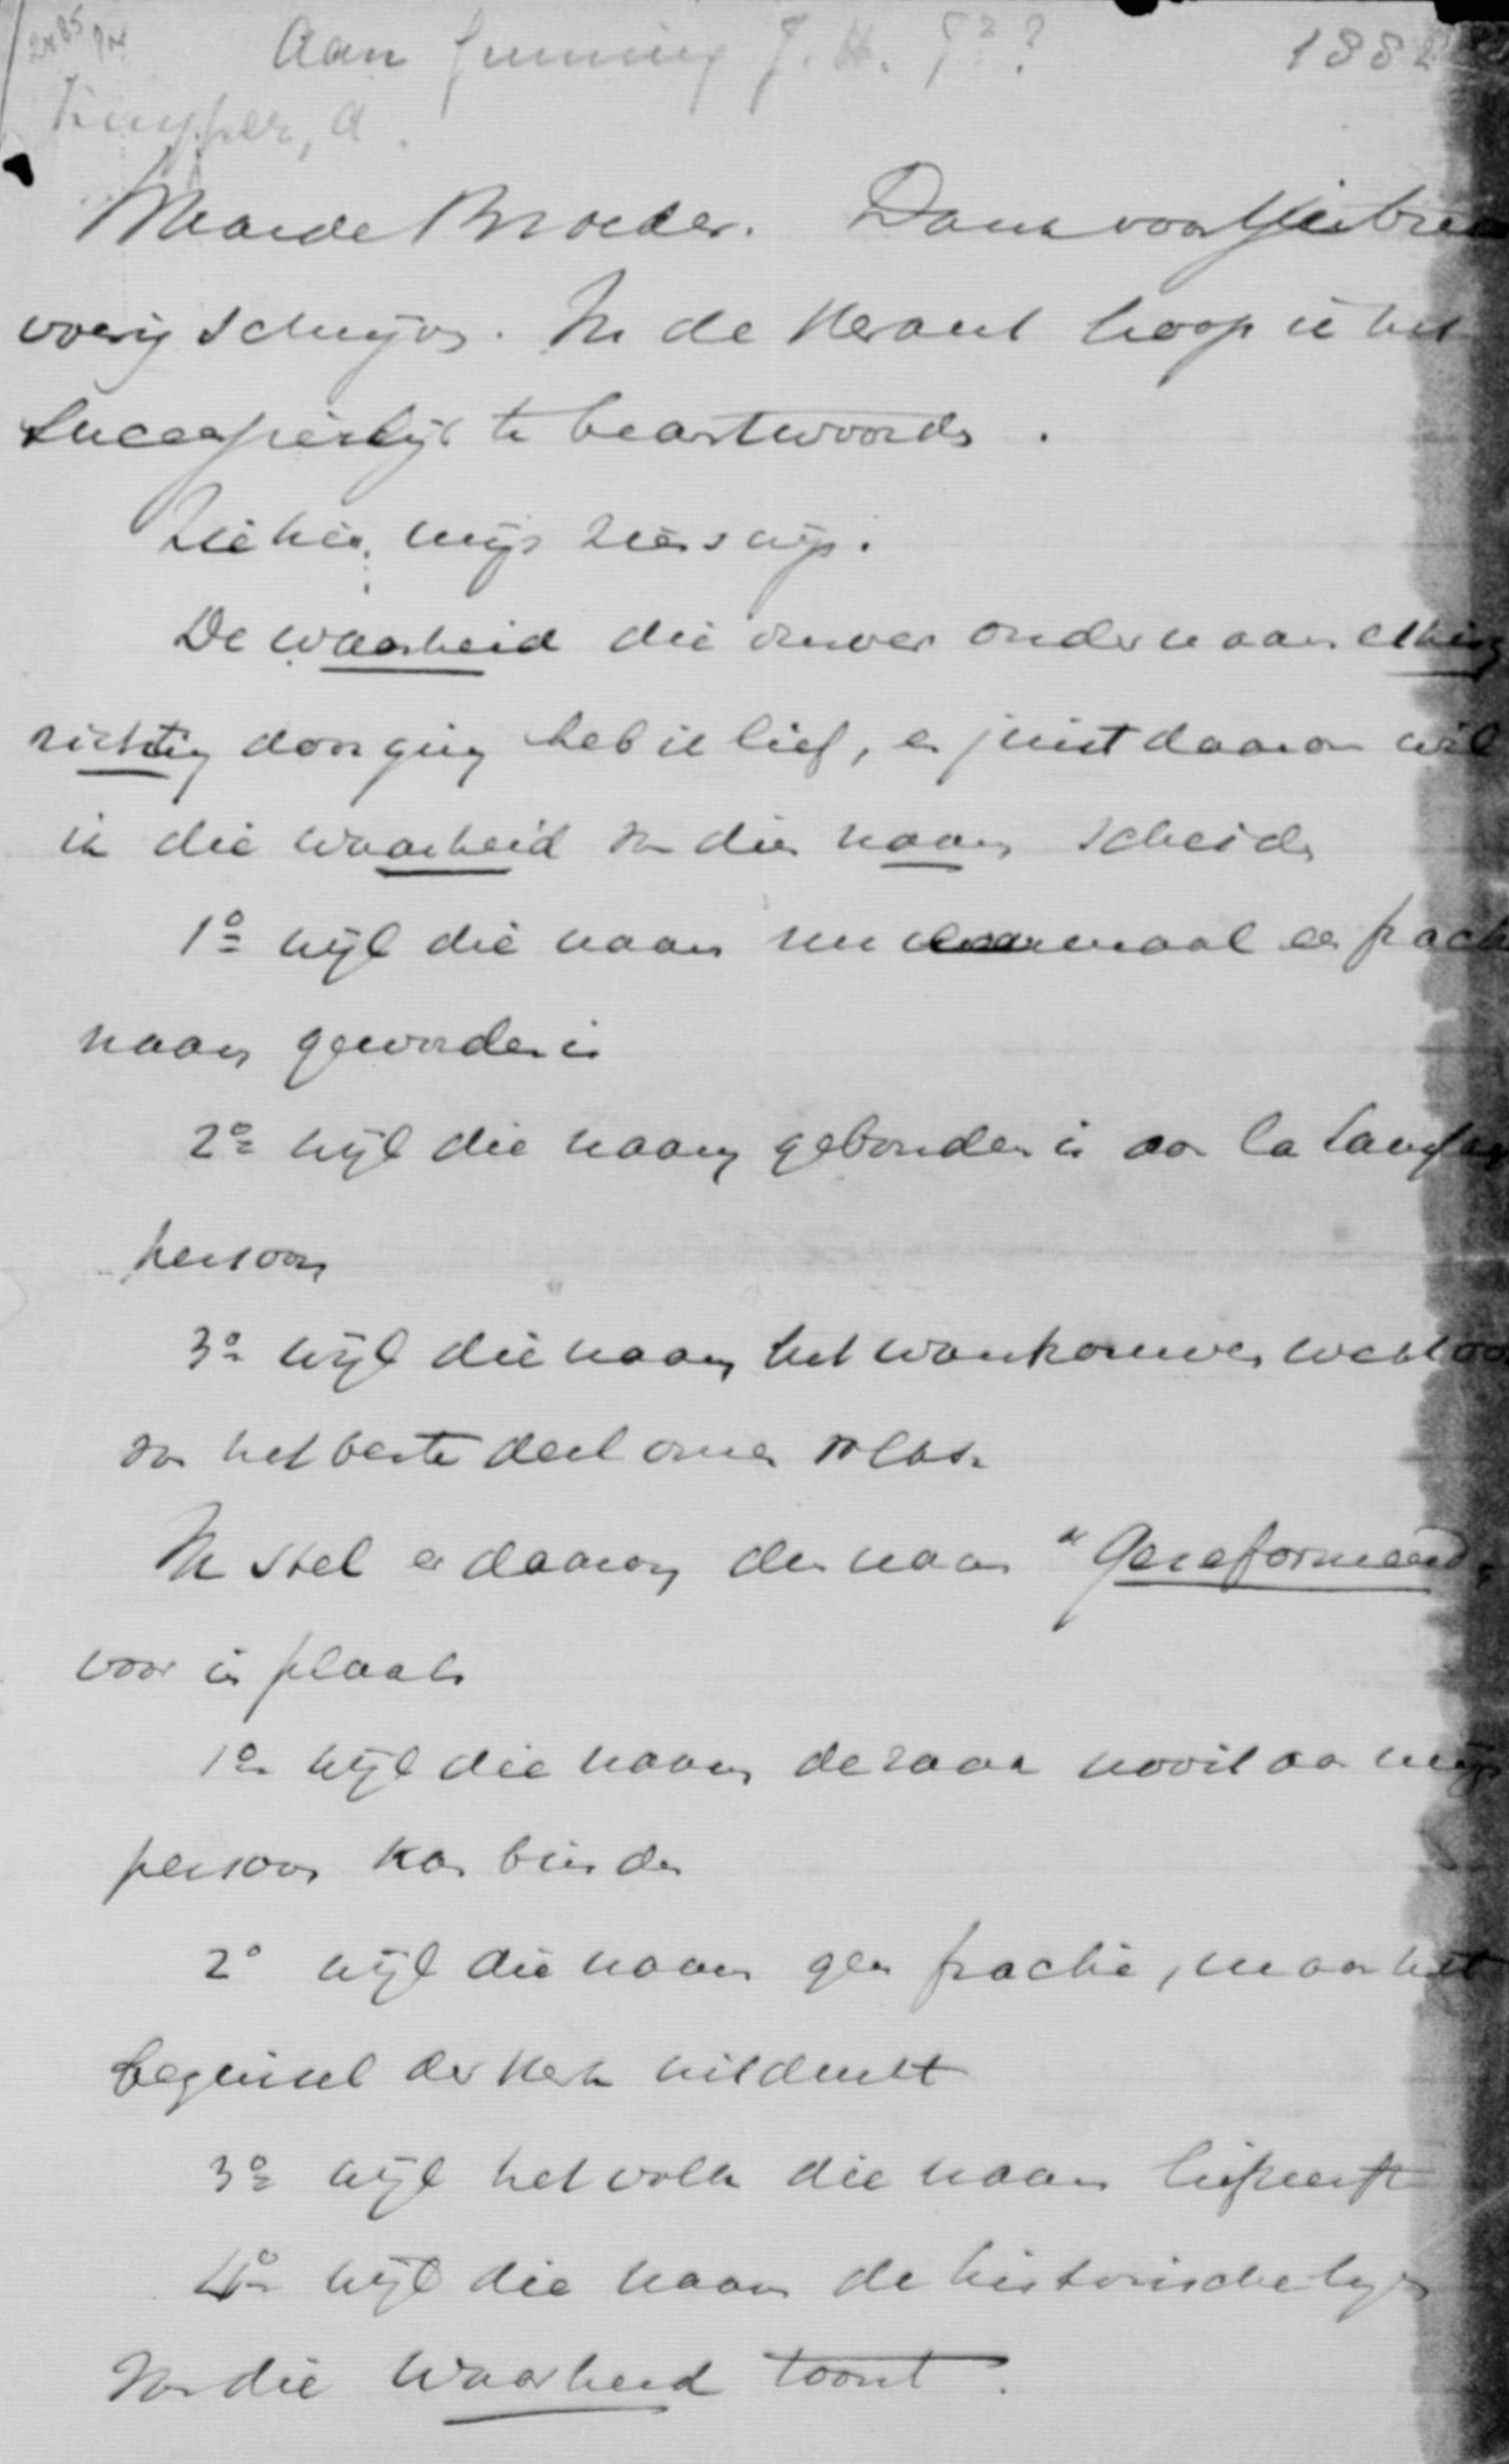 Aan Gunning J. H. Jr ?
1882
Kuyper, A.
Waarde Broeder. Dank voor Uw
voerig schrijven. In de Heraut hoop ik het
successievelijk te beantwoorden.
Zie hier mijn zienswijs.
De waarheid die onder naam ethisch
richting doorging heb ik lief, en juist daarom wil
ik die waarheid van dien naam scheiden
1º wijl die naam nu eenmaal een fractie
naam geworden is
2º wijl die naam gebonden is aan la Saussaye
persoon
3º wijl die naam het wantrouwen
van het beste deel onzer
Ik stel er daarom den naam "Gereformeerd"
voor in plaats
1º wijl die naam de zaak nooit aan mijn
persoon kan binden
2º wijl die naam geen fractie, maar het
beginsel der Kerk uitdrukt
3º wijl het volk die naam liefheeft
4º wijl die naam de historische lijn
van die waarheid toont.